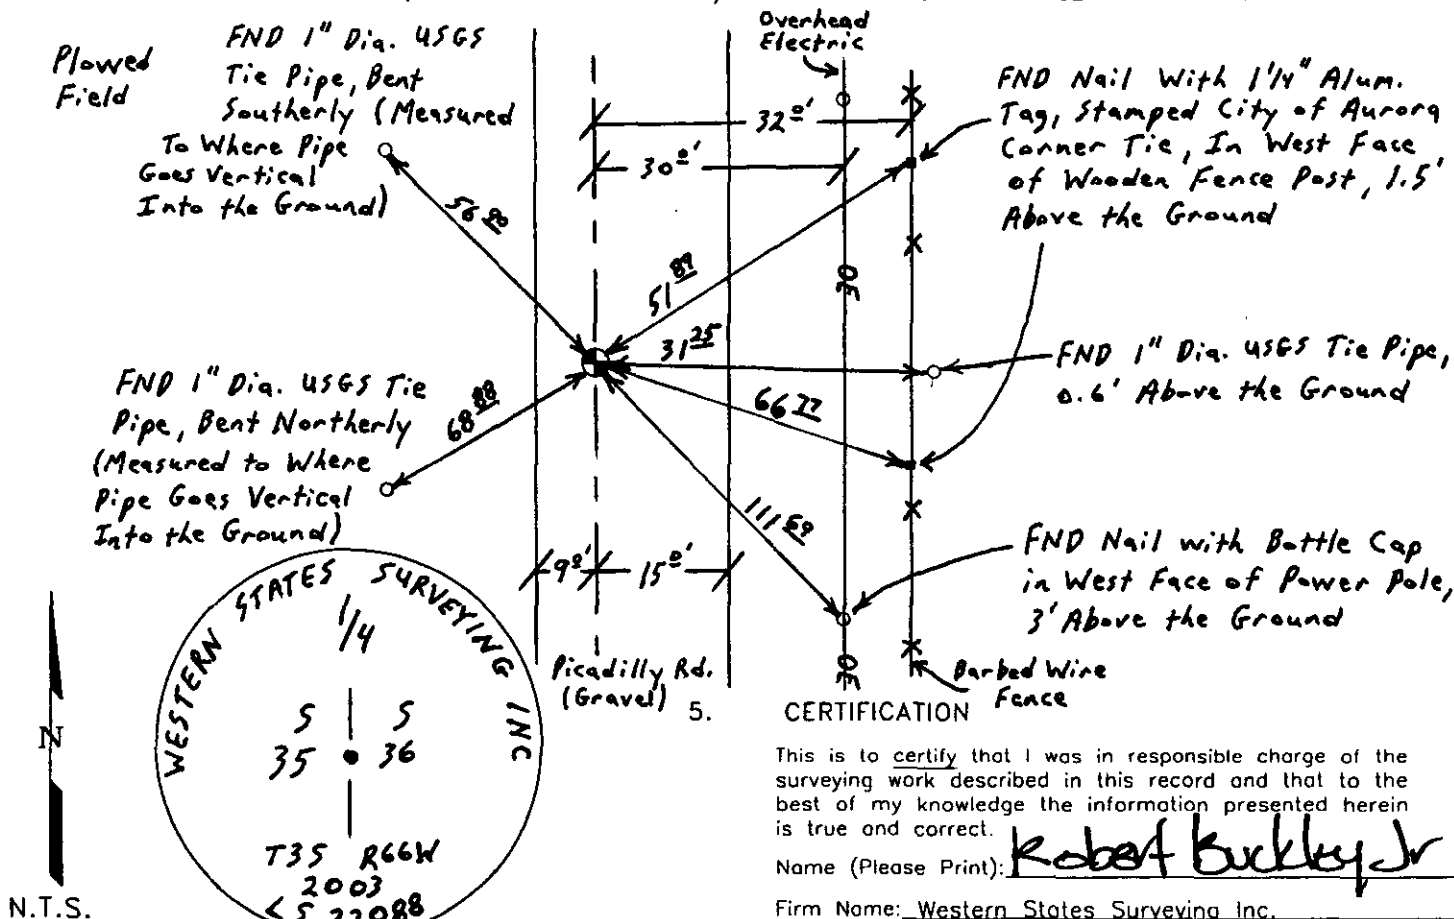 Plowed
Field
FND 1" Dia. USGS
Tie Pipe, Bent
Southerly (Measured
To Where Pipe
Goes Vertical
Into the Ground)
Overhead
Electric
32 0'
30 0'
FND Nail With 1 1/4" Alum.
Tag, Stamped City of Aurora
Corner Tie, In West Face
of Wooden Fence Post, 1.5'
Above the Ground
56 80
51 89
31 25
66 77
68 88
111 59
OE
FND 1" Dia. USGS Tie Pipe,
0.6' Above the Ground
FND 1" Dia. USGS Tie
Pipe, Bent Northerly
(Measured to Where
Pipe Goes Vertical
Into the Ground)
FND Nail with Bottle Cap
in West Face of Power Pole,
3' Above the Ground
9 0'
15 0'
OE
Picadilly Rd.
(Gravel)
Barbed Wire
Fence
WESTERN STATES SURVEYING INC
1/4
S S
35 36
T3S R66W
2003
LS 22088
N
N.T.S.
5. CERTIFICATION
This is to certify that I was in responsible charge of the
surveying work described in this record and that to the
best of my knowledge the information presented herein
is true and correct.
Name (Please Print): Robert Buckley Jr
Firm Name: Western States Surveying Inc.